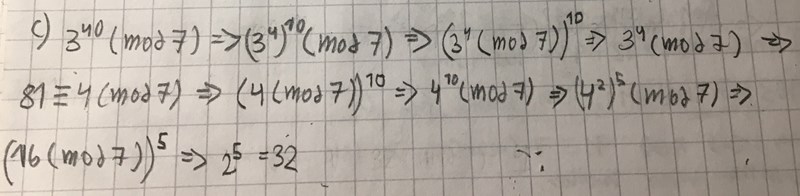 c) 3⁴⁰ (mod 7) => (3⁴)¹⁰ (mod 7) => (3⁴ (mod 7))¹⁰ => 3⁴ (mod 7) =>
81 ≡ 4 (mod 7) => (4 (mod 7))¹⁰ => 4¹⁰ (mod 7) => (4²)⁵ (mod 7) =>
(16 (mod 7))⁵ => 2⁵ = 32